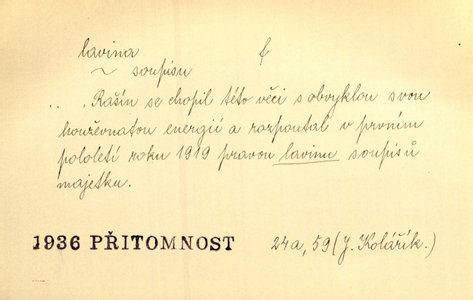 lavina f
~ soupisu
.. . Rašín se chopil této věci s obvyklou svou
houževnatou energií a rozpoutal v prvním
pololetí roku 1919 pravou lavinu soupisů
majetku.
1936 PŘITOMNOST 24a, 59 (J. Kolářík.)